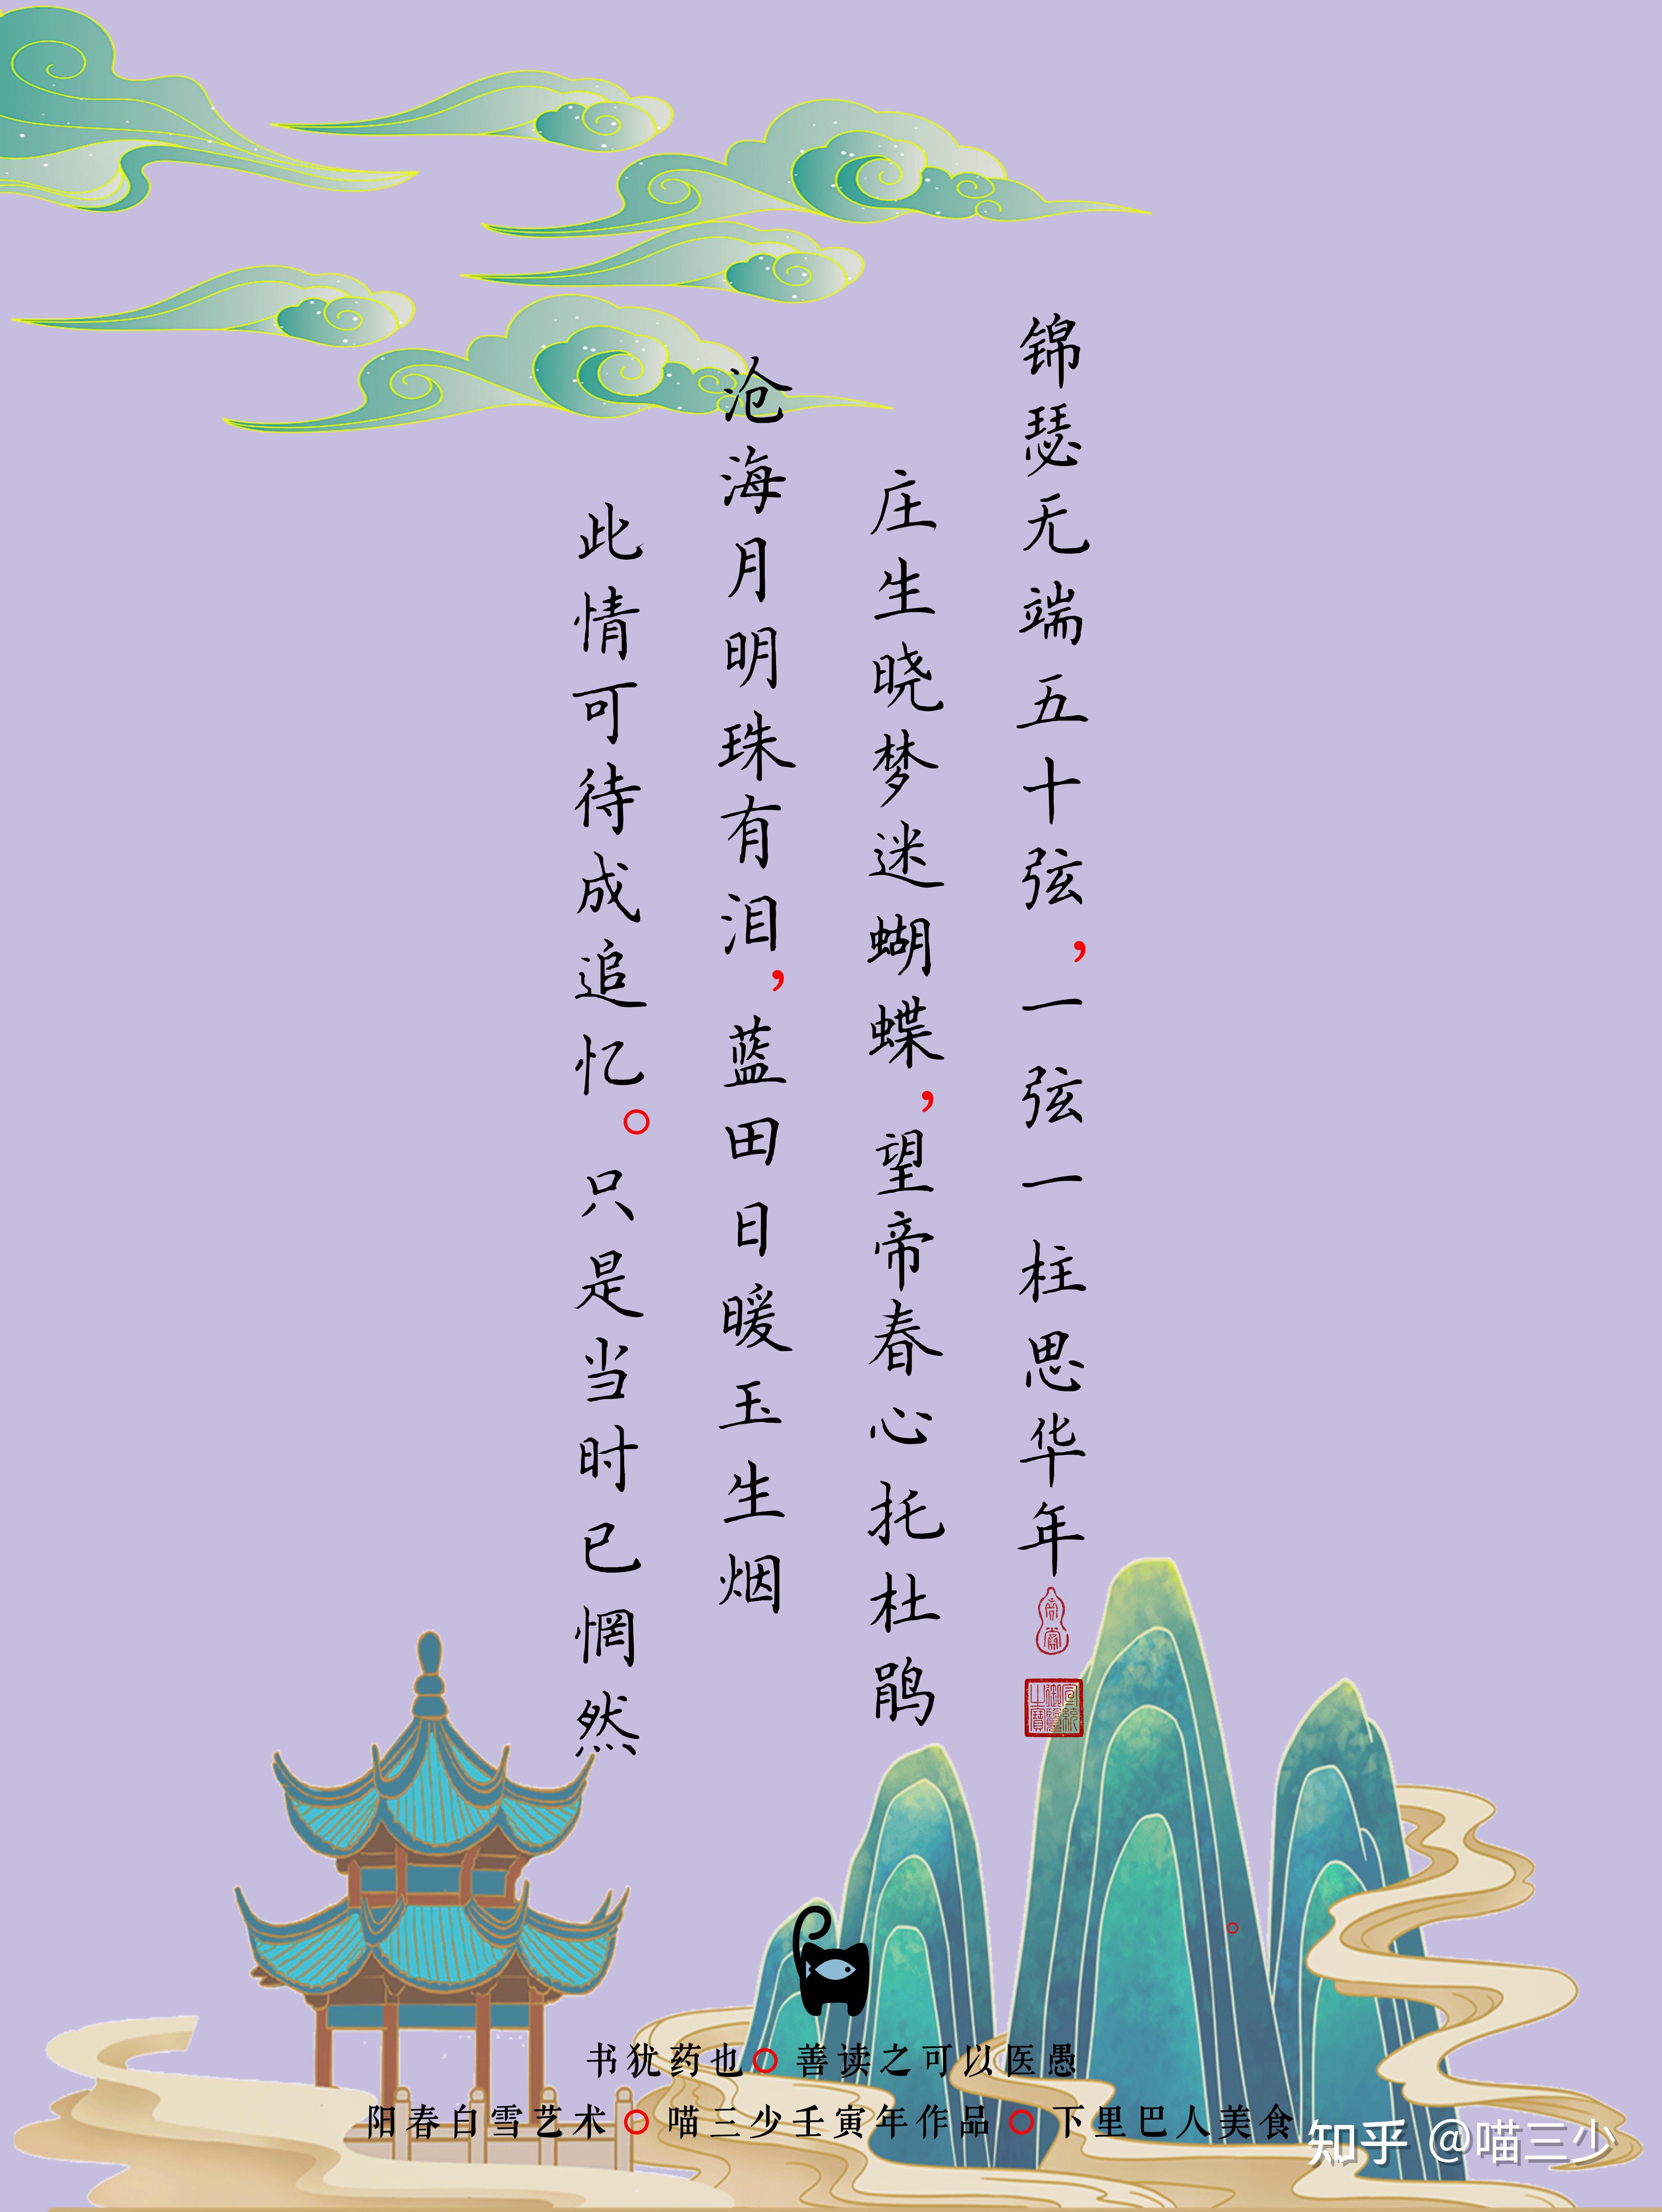 锦瑟无端五十弦，一弦一柱思华年
庄生晓梦迷蝴蝶，望帝春心托杜鹃
沧海月明珠有泪，蓝田日暖玉生烟
此情可待成追忆。只是当时已惘然
书犹药也○善读之可以医愚
阳春白雪艺术○喵三少壬寅年作品○下里巴人美食
知乎 @喵三少